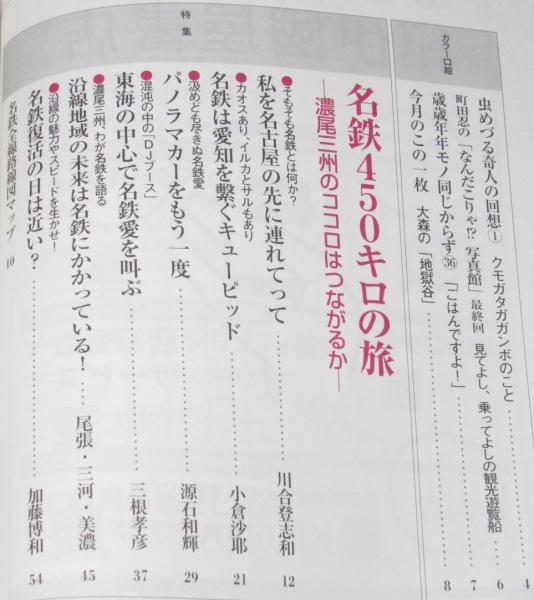 カラー口絵
虫めづる奇人の回想① クモガタガガンボのこと 4
町田忍の「なんだこりゃ!? 写真館」最終回 見てよし、乗ってよしの観光遊覧船 6
歳歳年年モノ同じからず㊱ 「ごはんですよ!」 7
今月のこの一枚 大森の「地獄谷」 8
特集
名鉄450キロの旅
―濃尾三州のココロはつながるか―
●そもそも名鉄とは何か?
私を名古屋の先に連れてって 川合登志和 12
●カオスあり、イルカとサルもあり
名鉄は愛知を繋ぐキューピッド 小倉沙耶 21
●汲めども尽きぬ名鉄愛
パノラマカーをもう一度 源石和輝 29
●混沌の中の「DJブース」
東海の中心で名鉄愛を叫ぶ 三根孝彦 37
●濃尾三州、わが名鉄を語る
沿線地域の未来は名鉄にかかっている! 尾張・三河・美濃 45
●沿線の魅力やスピードを生かせ!
名鉄復活の日は近い? 加藤博和 54
名鉄全線路線図マップ 10